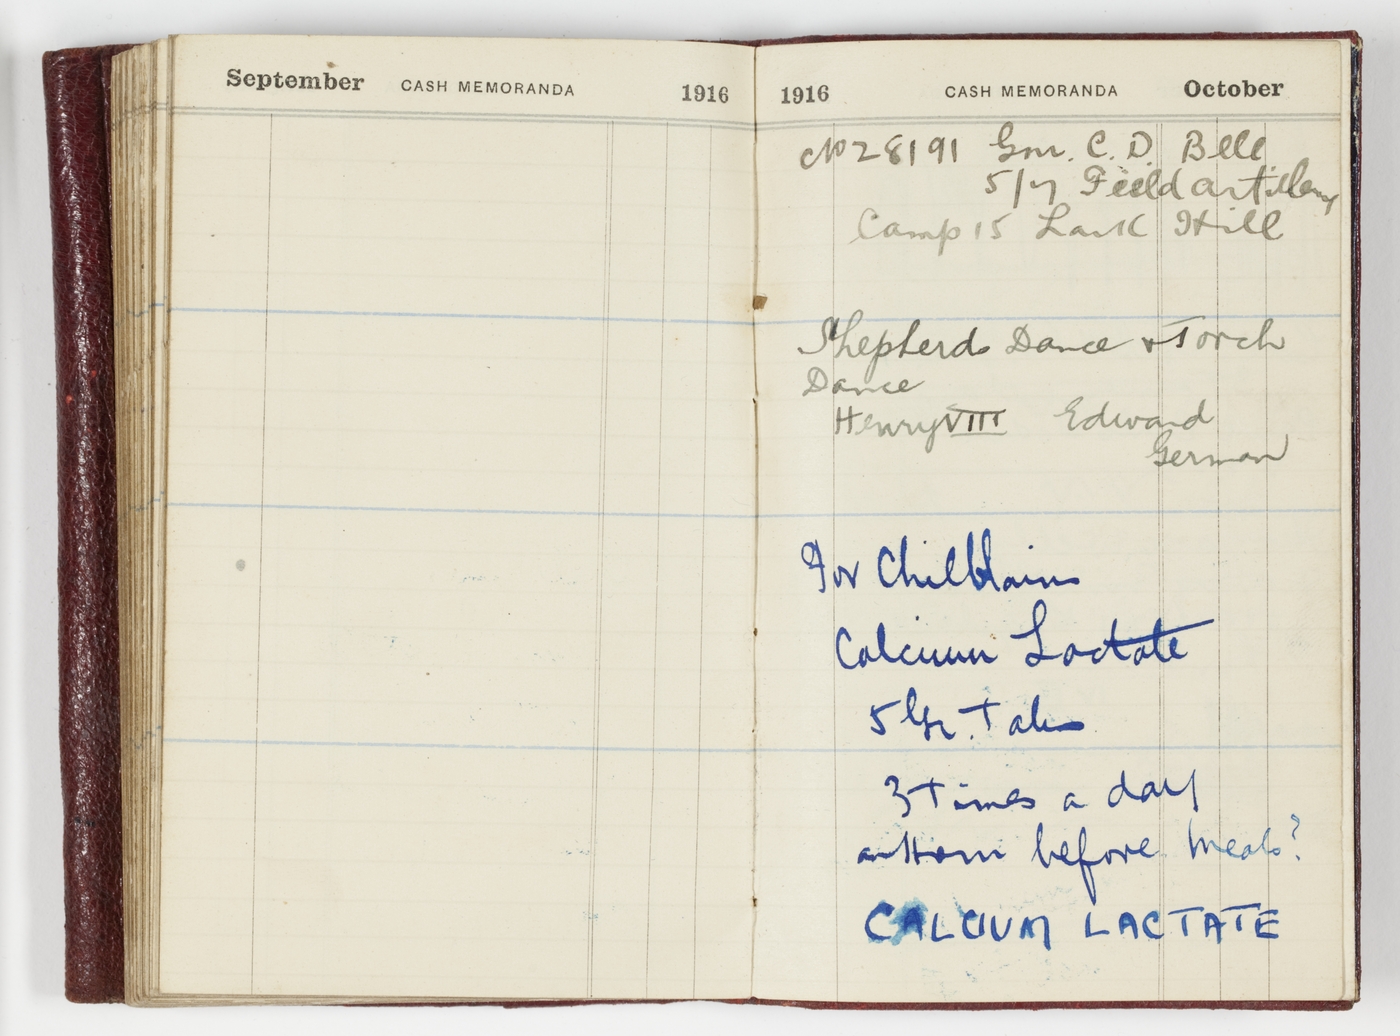 September CASH MEMORANDA 1916
1916 CASH MEMORANDA October
No 28191 Gnr. C. D. Bell
5/7 Field Artillery
Camp 15 Lark Hill
Shepherds Dance & Torch
Dance
Henry VIII Edward
German
For Chilblains
Calcium Lactate
5 Gr. Tabs
3 times a day
before meals?
CALCIUM LACTATE